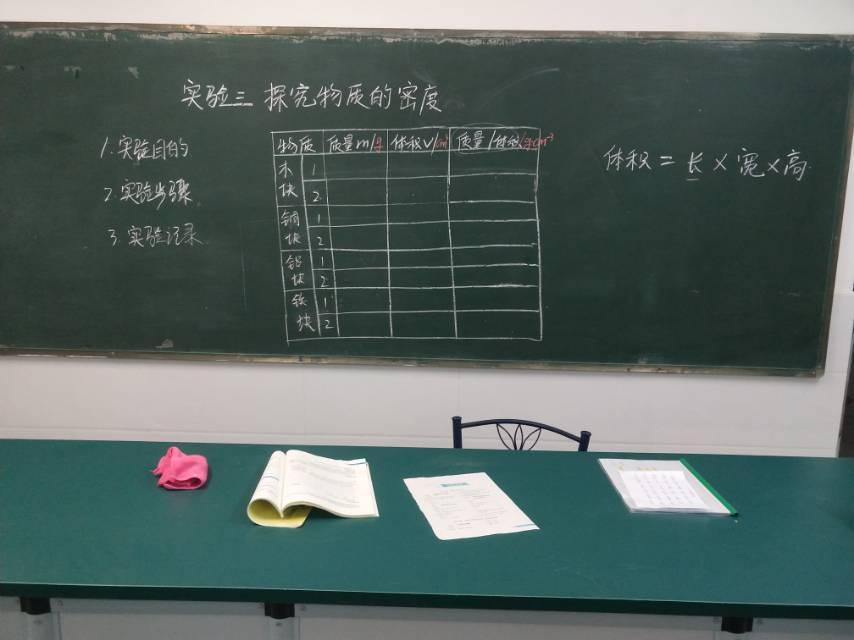 实验三 探究物质的密度
1.实验目的
2.实验步骤
3.实验记录
物质 质量m/g 体积V/cm³ 质量/体积/g·cm⁻³
木块 1
2
铜块 1
2
铝块 1
2
铁块 1
2
体积=长×宽×高